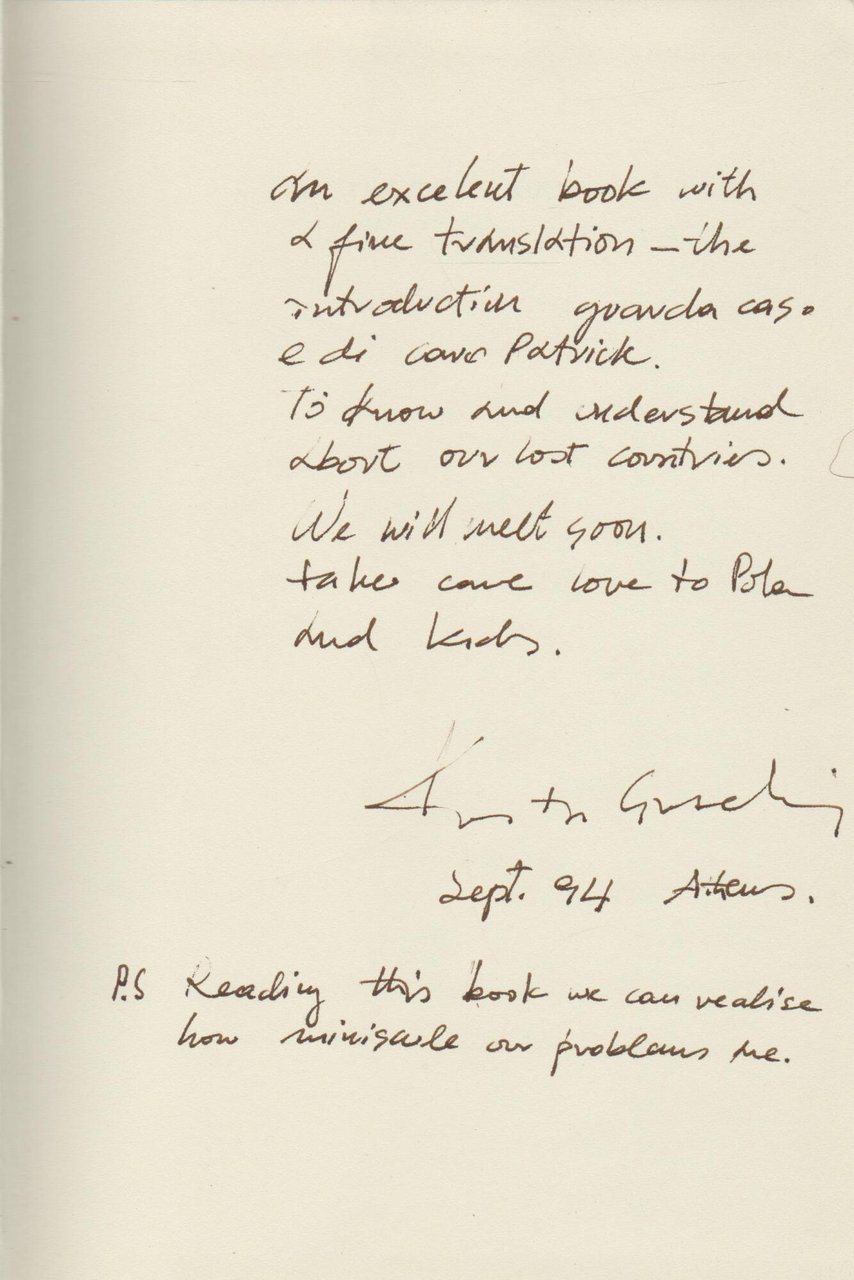 An excelent book with
a fine translation – the
introduction guarda caso
e di caro Patrick.
To know and understand
about our lost countries.
We will meet soon.
take care love to Pola
and kids.
Sept. 94 Athens.
P.S Reading this book we can realise
how miniscule our problems are.